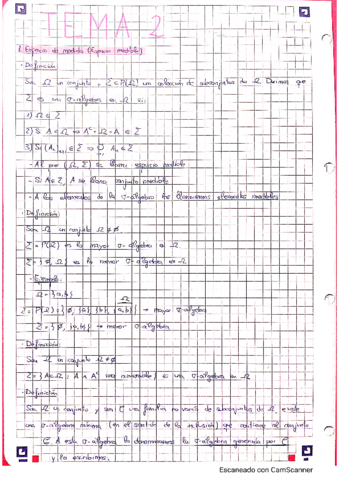 TEMA 2
1. Espacio de medida (Espacio medible)
- Definición
Sea Ω un conjunto, Σ ⊂ P(Ω) una colección de subconjuntos de Ω. Diremos que
Σ es una σ-álgebra en Ω si:
1) Ω ∈ Σ
2) Si A ∈ Σ ⇒ Aᶜ = Ω - A ∈ Σ
3) Si (Aₙ) ∈ Σ ⇒ ∪ Aₙ ∈ Σ
- Al par (Ω, Σ) se llama espacio medible
- Si A ∈ Σ, A se llama conjunto medible
- A los elementos de la σ-álgebra los llamaremos elementos medibles
- Definición
Sea Ω un conjunto Ω ≠ ∅
Σ = P(Ω) es la mayor σ-álgebra en Ω
Σ = {∅, Ω} es la menor σ-álgebra en Ω
- Ejemplo:
Ω = {a, b}
Ω
Σ = P(Ω) = {∅, {a}, {b}, {a,b}} → mayor σ-álgebra
Σ = {∅, {a,b}} → menor σ-álgebra
- Definición
Sea Ω un conjunto Ω ≠ ∅
Σ = {A ⊂ Ω : A ó Aᶜ sea numerable} es una σ-álgebra en Ω
- Definición
Sea Ω un conjunto y sea C una familia no vacía de subconjuntos de Ω, existe
una σ-álgebra mínima (en el sentido de la inclusión) que contiene al conjunto
C. A esta σ-álgebra la denominaremos la σ-álgebra generada por C
y la escribimos
Escaneado con CamScanner